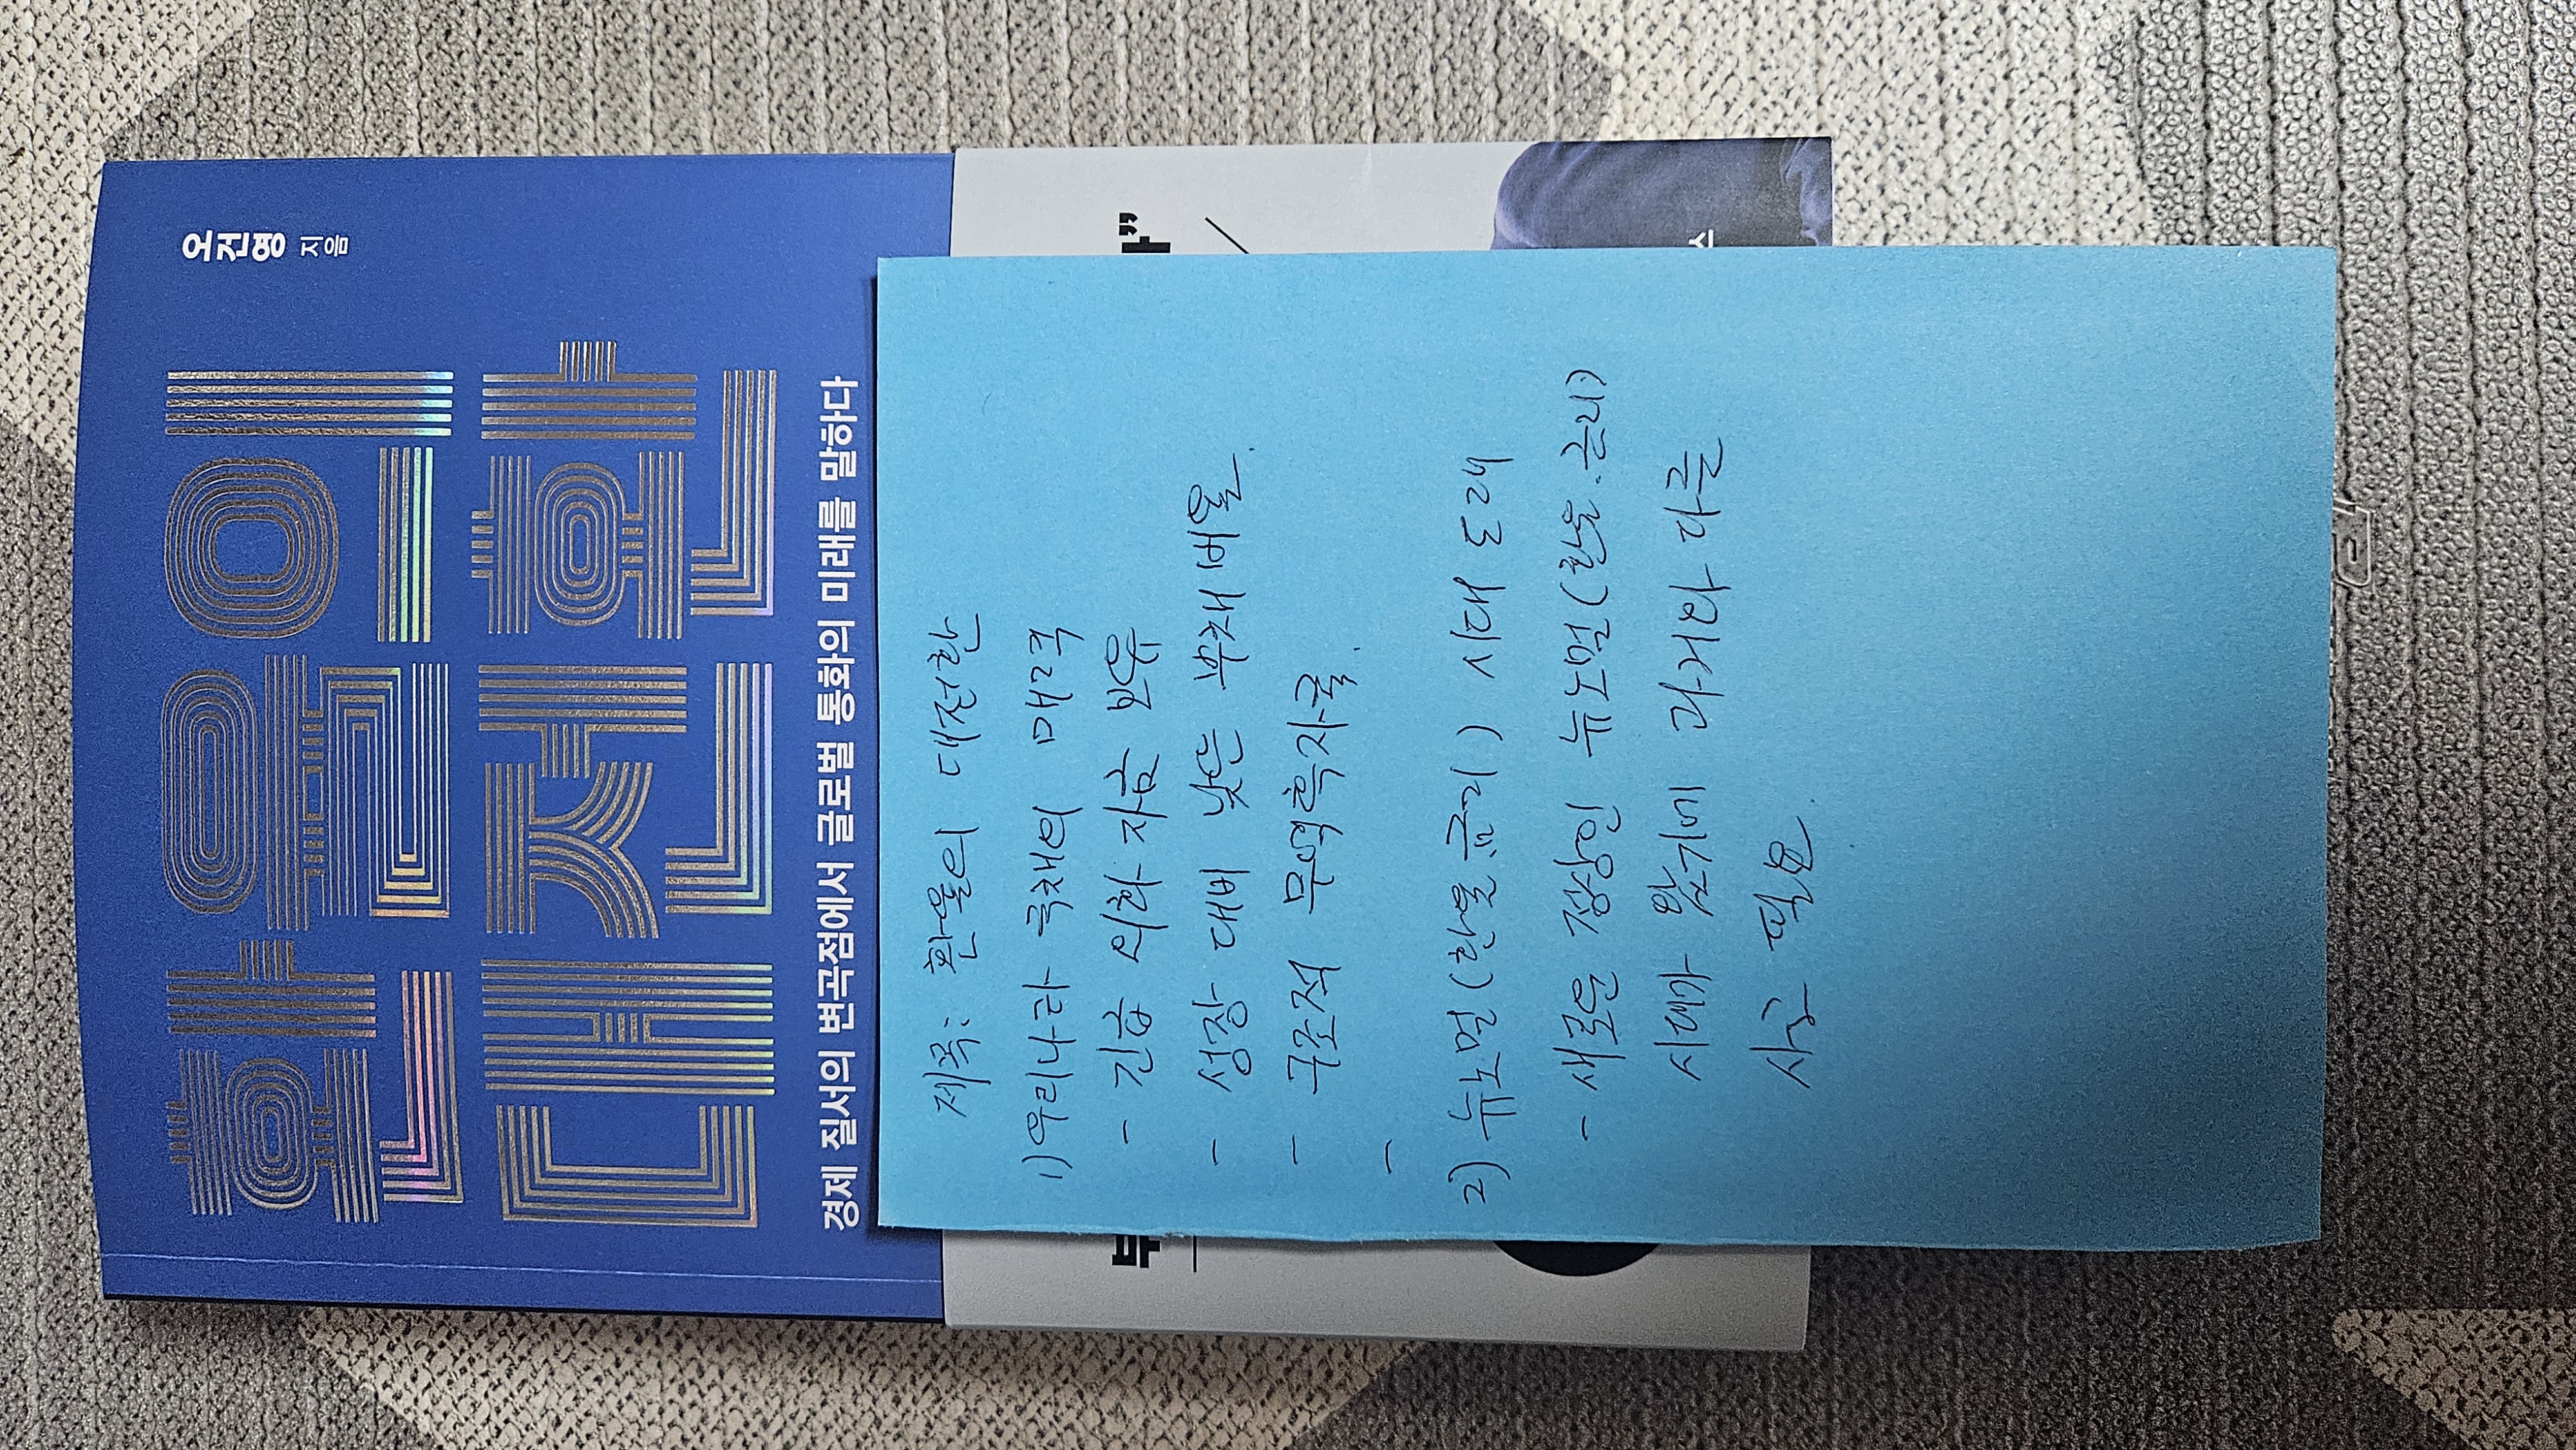 오건영 지음
환율의
대전환
경제 질서의 변곡점에서 글로벌 통화의 미래를 말하다
제목: 환율의 대전환
1) 우리나라 국채의 매력
- 긴급 외화 자금 보유
- 성장 대비 낮은 부채 비율.
- 구조적 무역흑자국.
-
2) 뉴노멀(환율.금리) 시대 도래
- 새로운 정상인 뉴노멀(환율.금리)
시대가 왔기에 과거와 다른
사고 필요.